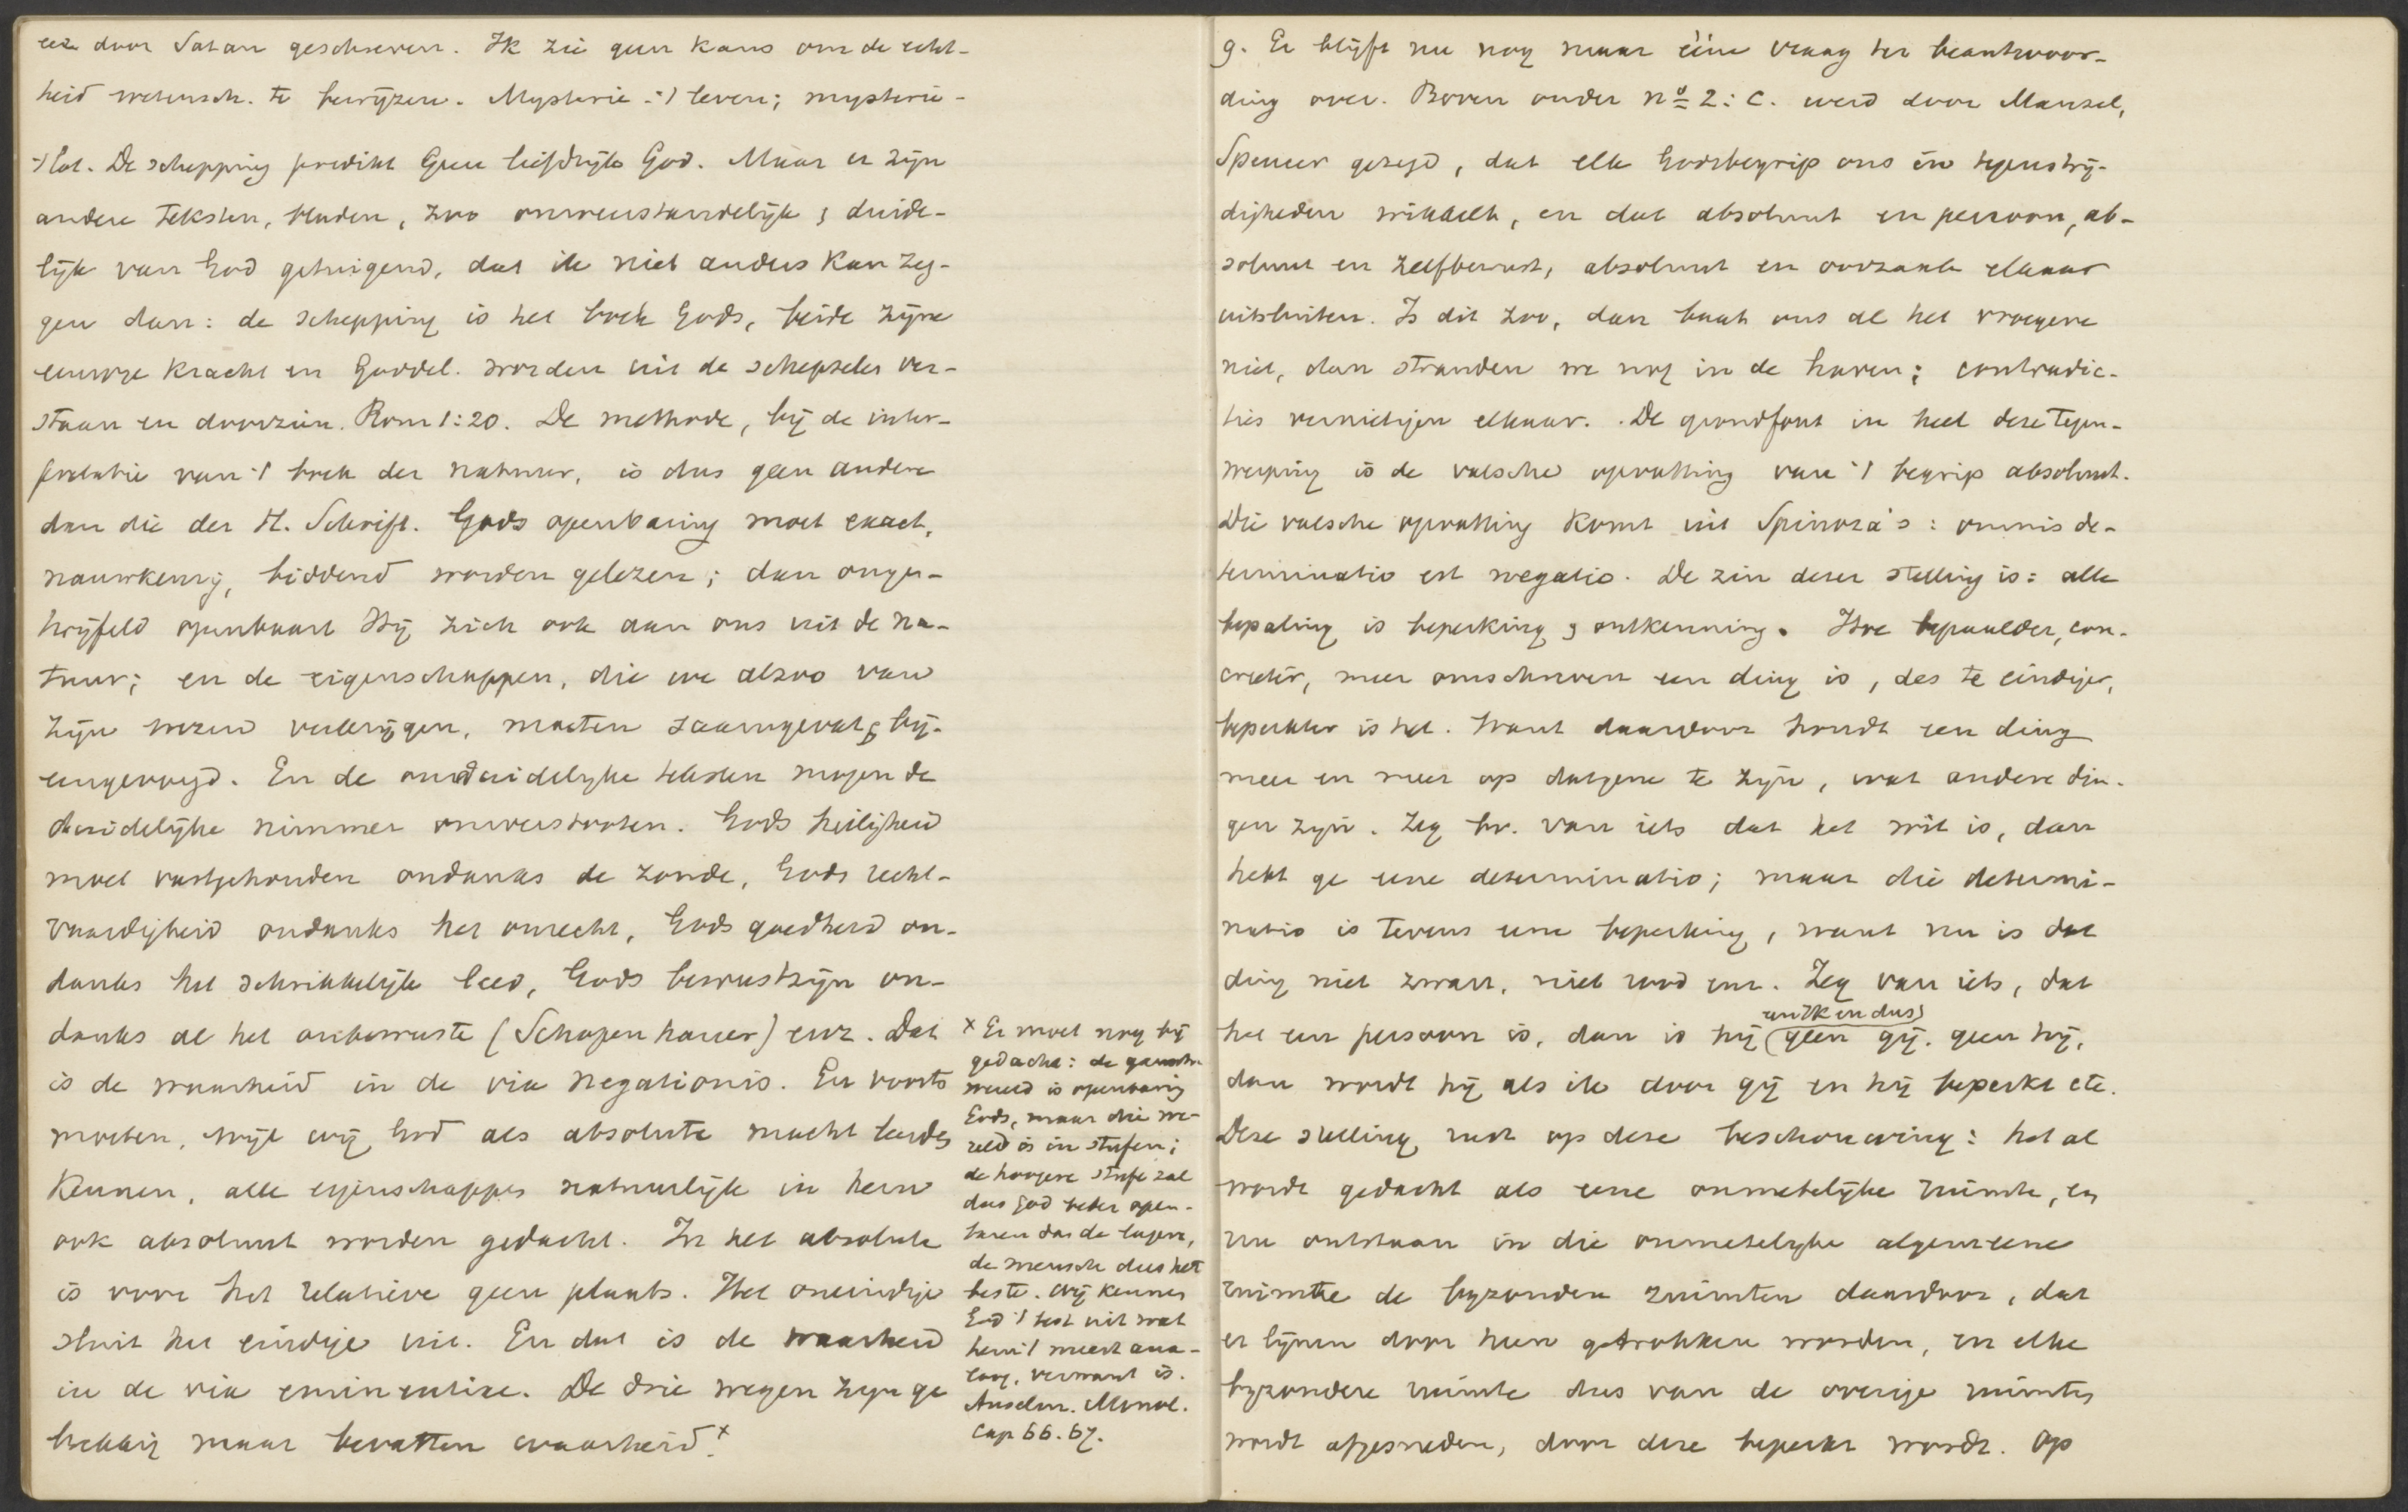 een door Satan geschreven. Ik zie geen kans om de echt-
heid wetensch. te bewijzen. Mysterie - 't leven; mysterie -
't lot. De schepping predikt geen liefdrijk God. Maar er zijn
andere teksten, bladen, zoo onweerstandelijk & duide-
lijk van God getuigend, dat ik niet anders kan zeg-
gen dan: de schepping is het boek Gods, beide zijne
eeuwige kracht en Goddel. worden uit de schepselen ver-
staan en doorzien. Rom 1:20. De methode, bij de inter-
pretatie van 't boek der natuur, is dus geen andere
dan die der H. Schrift. Gods openbaring moet exact,
nauwkeurig, biddend worden gelezen; dan onge-
twijfeld openbaart Hij zich ook aan ons uit de na-
tuur; en de eigenschappen, die we alzoo van
zijn wezen verkrijgen, moeten saamgevat & bij-
eengevoegd. En de onduidelijke teksten mogen de
duidelijke nimmer omverstooten. Gods heiligheid
moet vastgehouden ondanks de zonde, Gods recht-
vaardigheid ondanks het onrecht, Gods goedheid on-
danks het schrikkelijk leed, Gods bewustzijn on-
danks al het onbewuste (Schopenhauer) enz. Dat
is de waarheid in de via negationis. En voorts
moeten, wijl wij God als absolute macht leerden
kennen, alle eigenschappen natuurlijk in hem
ook absoluut worden gedacht. In het absolute
is voor het relatieve geen plaats. Het oneindige
sluit het eindige uit. En dat is de waarheid
in de via eminentiae. De drie wegen zijn ge
brekkig maar bevatten waarheid.x
x Er moet nog bij
gedacht: de gansche
wereld is openbaring
Gods, maar die we-
reld is in stufen;
de hoogere stufe zal
dus God beter open-
baren dan de lagere,
de mensch dus het
beste. Wij kennen
God 't best uit wat
hem 't meest ana-
loog, verwant is.
Anselm. Monol.
cap 66. 67.
g. Er blijft nu nog maar ééne vraag ter beantwoor-
ding over. Boven onder no 2: c. werd door Mansel,
Spencer gezegd, dat elk Godsbegrip ons in tegenstrij-
digheden wikkelt, en dat absoluut en persoon, ab-
soluut en zelfbewust, absoluut en oorzaak elkaar
uitsluiten. Is dit zoo, dan baat ons al het vroegere
niet, dan stranden we nog in de haven; contradic-
ties vernietigen elkaar. De grondfout in heel deze tegen-
werping is de valsche opvatting van 't begrip absoluut.
Die valsche opvatting komt uit Spinoza's: omnis de-
terminatio est negatio. De zin dezer stelling is: alle
bepaling is beperking & ontkenning. Hoe bepaalder, con-
creter, meer omschreven een ding is, des te eindiger,
beperkter is het. Want daardoor houdt een ding
meer en meer op datgene te zijn, wat andere din-
gen zijn. Zeg bv. van iets dat het wit is, dan
hebt ge eene determinatio; maar die determi-
natio is tevens eene beperking, want nu is dat
ding niet zwart, niet rood enz. Zeg van iets, dat
het een persoon is, dan is hij (geen gij. geen hij,
een ik en dus)
dan wordt hij als ik door gij en hij beperkt etc.
Deze stelling rust op deze beschouwing: het al
wordt gedacht als eene onmetelijke ruimte, en
nu ontstaan in die onmetelijke algemeene
ruimte de byzondere ruimten daardoor, dat
er lijnen door heen getrokken worden, en elke
byzondere ruimte dus van de overige ruimten
wordt afgesneden, door deze beperkt wordt. Op